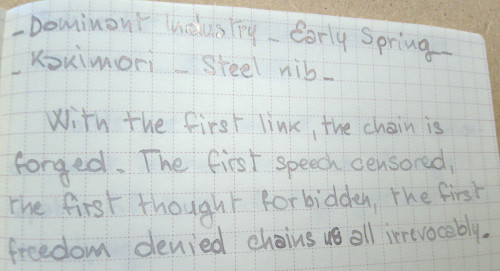 - Dominant Industry - Early Spring -
- Kakimori - Steel nib -
With the first link, the chain is
forged. The first speech censored,
the first thought forbidden, the first
freedom denied chains us all irrevocably.